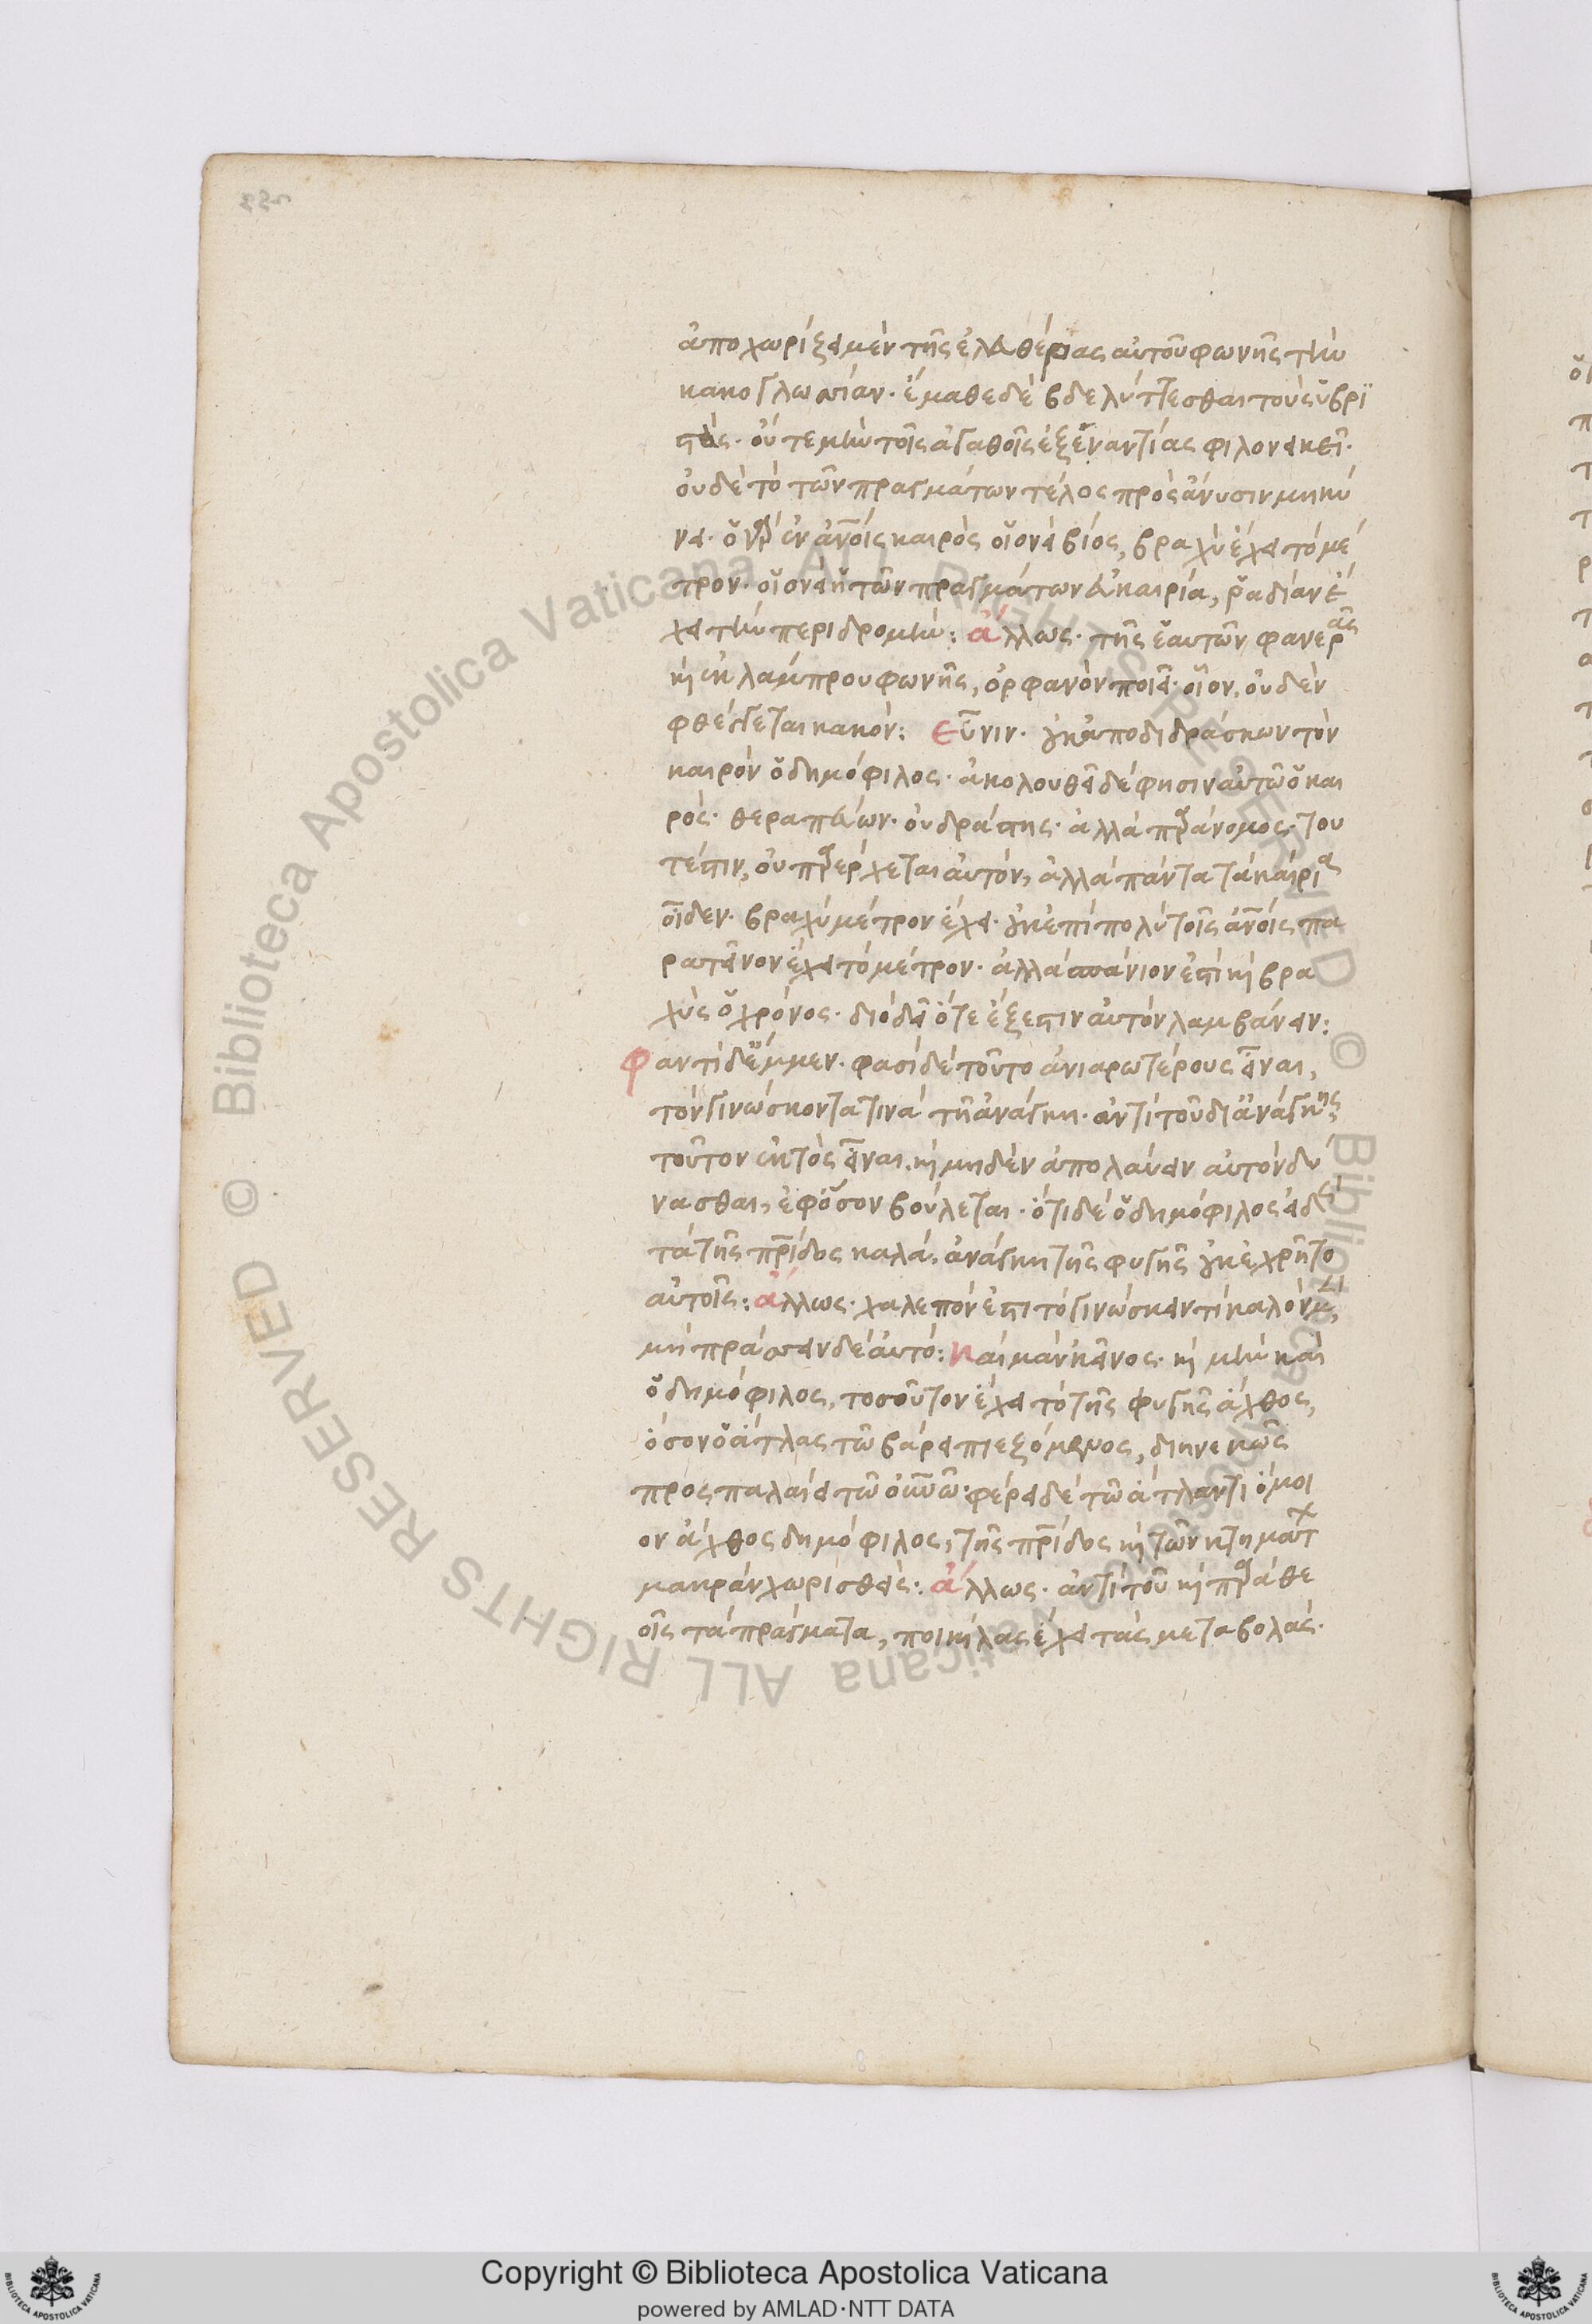 ἀποχωρίζει μὲν τῆς ἐλευθέρας αὐτοῦ φωνῆς τὴν
κακογλωσσίαν· ἔμαθε δὲ βδελύττεσθαι τοὺς ὑβρι
στάς· οὔτε μὴν τοῖς ἀγαθοῖς ἐξ ἐναντίας φιλονεικεῖ·
οὐδὲ τὸ τῶν πραγμάτων τέλος πρὸς ἄνυσιν μηκύ
νει· ὁ γὰρ ἐν ἀνοις καιρὸς οἱονεὶ βίος, βραχὺ ἔχει τὸ μέ
τρον· οἱονεὶ ἡ τῶν πραγμάτων εὐκαιρία, ῥαδίαν ἔ
χει τὴν περιδρομήν: ἄλλως· τῆς ἑαυτῶν φανερᾶς
καὶ ἐκ λαμπροῦ φωνῆς, ὀρφανὸν ποιεῖ· οἷον, οὐδὲν
φθέγγεται κακόν: εὖνιν· οὐκ ἀποδιδράσκων τὸν
καιρὸν ὁ δημόφιλος· ἀκολουθεῖ δέ φησιν αὐτῷ ὁ και
ρὸς· θεραπεύων· οὐ δράστης· ἀλλὰ παράνομος· του
τέστιν, οὐ παρέρχεται αὐτόν, ἀλλὰ πάντα τὰ καίρια
οἶδεν· βραχὺ μέτρον ἔχει· οὐκ ἐπιπολὺ τοῖς ἀνοις πα
ρατεῖνον ἔχει τὸ μέτρον· ἀλλὰ σπάνιον ἐστὶ καὶ βρα
χὺς ὁ χρόνος· διὸ δεῖ ὅτε ἔξεστιν αὐτὸν λαμβάνειν:
φαντὶ δ' ἔμμεν· φασὶ δὲ τοῦτο ἀνιαρωτέρους εἶναι,
τὸν γινώσκοντα τινὰ τῇ ἀνάγκῃ· ἀντὶ τοῦ δι' ἀνάγκης
τοῦτον ἐκτὸς εἶναι. καὶ μηδὲν ἀπολαύειν αὐτὸν δύ
νασθαι, ἐφ' ὅσον βούλεται· ὅτι δὲ ὁ δημόφιλος εἰδὼς
τὰ τῆς πρίδος καλὰ, ἀνάγκῃ τῆς φυγῆς οὐκ ἐχρῆτο
αὐτοῖς: ἄλλως· χαλεπόν ἐστι τὸ γινώσκειν τὶ καλὸν μὲν,
μὴ πράσσειν δὲ αὐτό: καὶ μὰν κεῖνος· καὶ μὴν καὶ
ὁ δημόφιλος, τοσοῦτον ἔχει τὸ τῆς φυγῆς ἄχθος,
ὅσον ὁ ἄτλας τῷ βάρει πιεζόμενος, διηνεκῶς
προσπαλαίει τῷ οὐνῷ: φέρει δὲ τῷ ἄτλαντι ὅμοι
ον ἄχθος δημόφιλος, τῆς πρίδος καὶ τῶν κτημάτων
μακρὰν χωρισθείς: ἄλλως· ἀντὶ τοῦ καὶ παρὰ θε
οῖς τὰ πράγματα, ποικίλας ἔχει τὰς μεταβολάς·
Copyright © Biblioteca Apostolica Vaticana
powered by AMLAD·NTT DATA